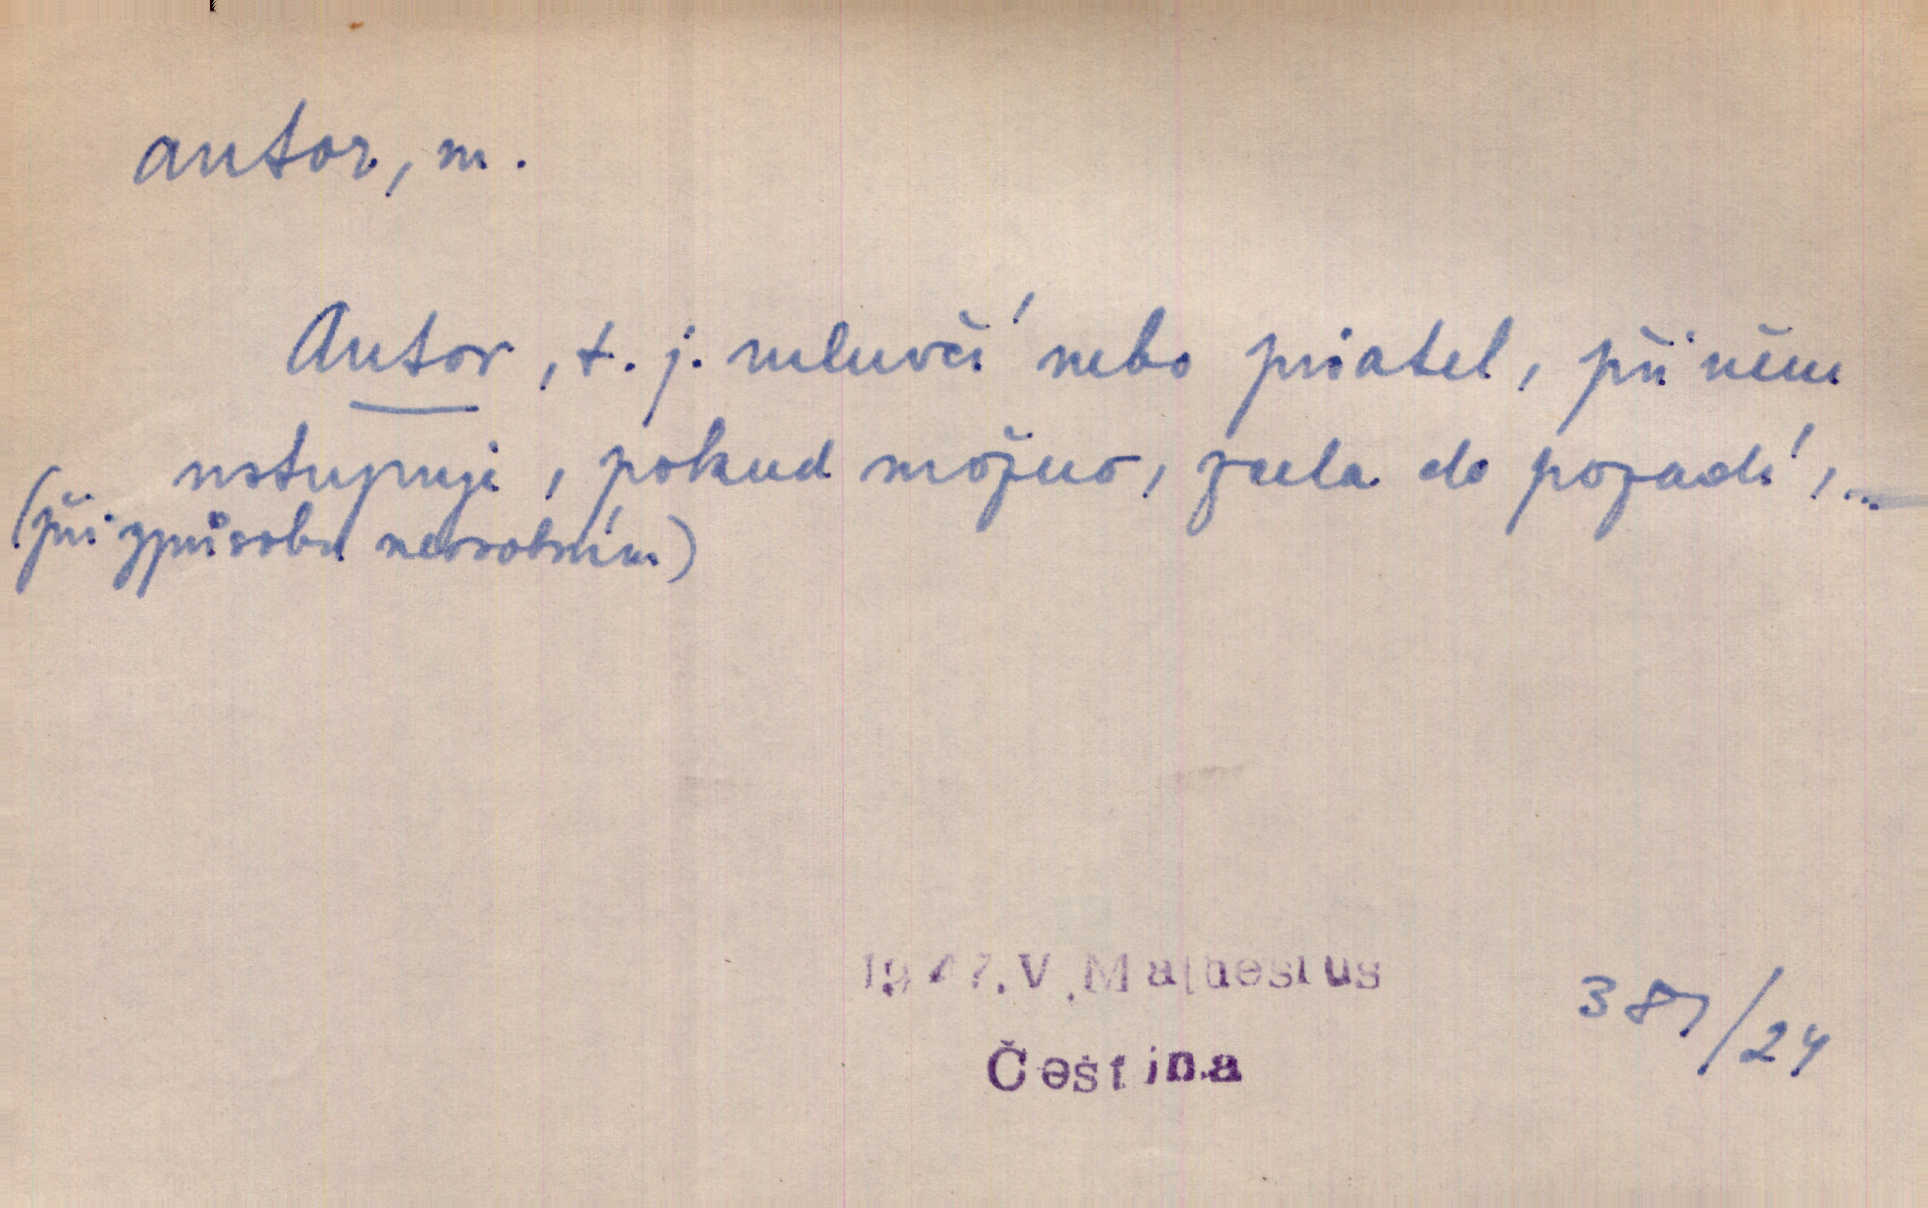 autor, m.
Autor, t. j. mluvčí nebo pisatel, při něm
ustupuje, pokud možno, zcela do pozadí, ...
(při způsobu neosobním)
1947. V. Mathesius
Čeština
387/24